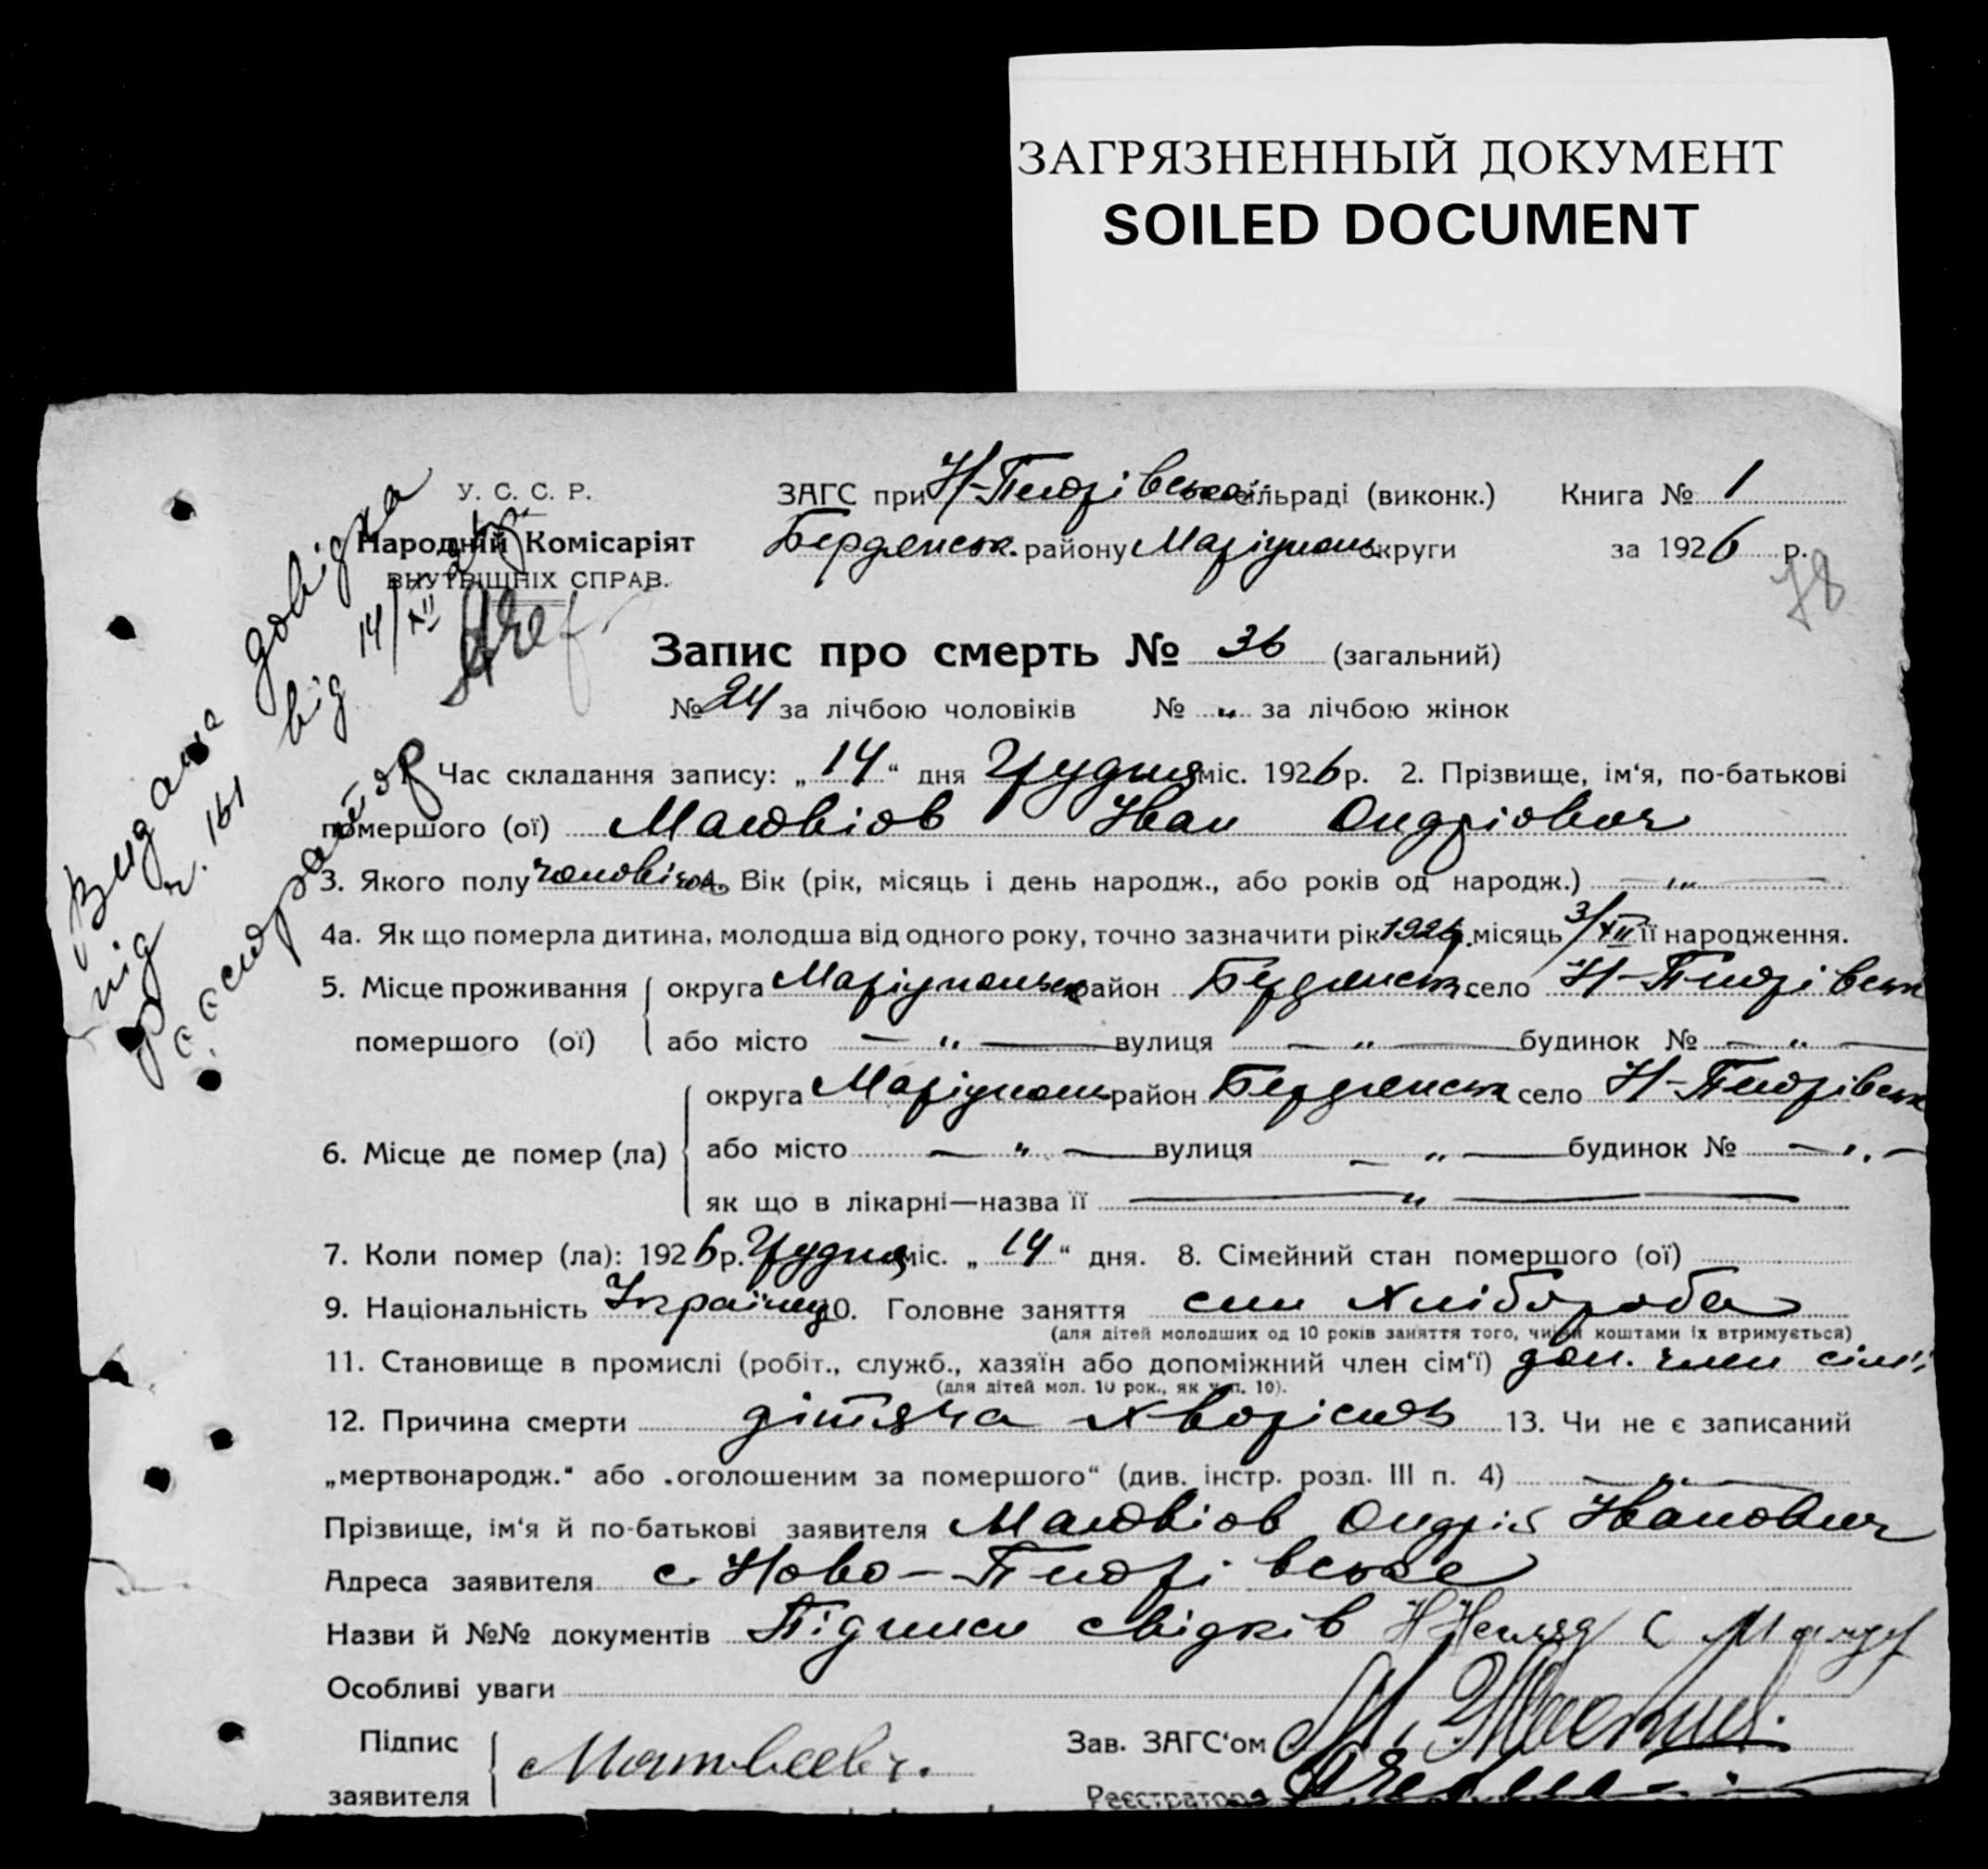 ЗАГРЯЗНЕННЫЙ ДОКУМЕНТ
SOILED DOCUMENT
У. С. С. Р.
Народній Комісаріят
ВНУТРІШНІХ СПРАВ.
ЗАГС при Н-Петрівської сільраді (виконк.) Книга № 1
Бердянськ. району Маріупольськ округи за 1926 р.
78
Видана довідка
під ч. 161 від 14/XII 26 р.
Запис про смерть № 36 (загальний)
№ 24 за лічбою чоловіків № „ за лічбою жінок
Час складання запису: „14“ дня Грудня міс. 1926 р. 2. Прізвище, ім‘я, по-батькові
помершого (ої) Матвіов Іван Ондріович
3. Якого полу чоловічої 4. Вік (рік, місяць і день народж., або років од народж.) — „ —
4а. Як що померла дитина, молодша від одного року, точно зазначити рік 1926 р. місяць 3/XII її народження.
5. Місце проживання помершого (ої) округа Маріупольськ район Бердянськ село Н-Петрівськ
або місто — „ — вулиця — „ — будинок № — „ —
6. Місце де помер (ла) округа Маріупольськ район Бердянськ село Н-Петрівськ
або місто — „ — вулиця — „ — будинок № — „ —
як що в лікарні—назва її — „ —
7. Коли помер (ла): 1926 р. Грудня міс. „14“ дня. 8. Сімейний стан помершого (ої)
9. Національність Українец 10. Головне заняття син Хлібороба
(для дітей молодших од 10 років заняття того, чиїми коштами їх втримується)
11. Становище в промислі (робіт., служб., хазяїн або допоміжний член сім‘ї) доп. член сім'ї
(для дітей мол. 10 рок., як у п. 10).
12. Причина смерти дітяча Хворість 13. Чи не є записаний
„мертвонародж.“ або „оголошеним за помершого“ (див. інстр. розд. III п. 4) — „ —
Прізвище, ім‘я й по-батькові заявителя Матвіов Ондрій Іванович
Адреса заявителя с Ново-Петрівське
Назви й №№ документів Підписи свідків
Особливі уваги
Підпис заявителя Матвеев
Зав. ЗАГС‘ом
Реєстратор